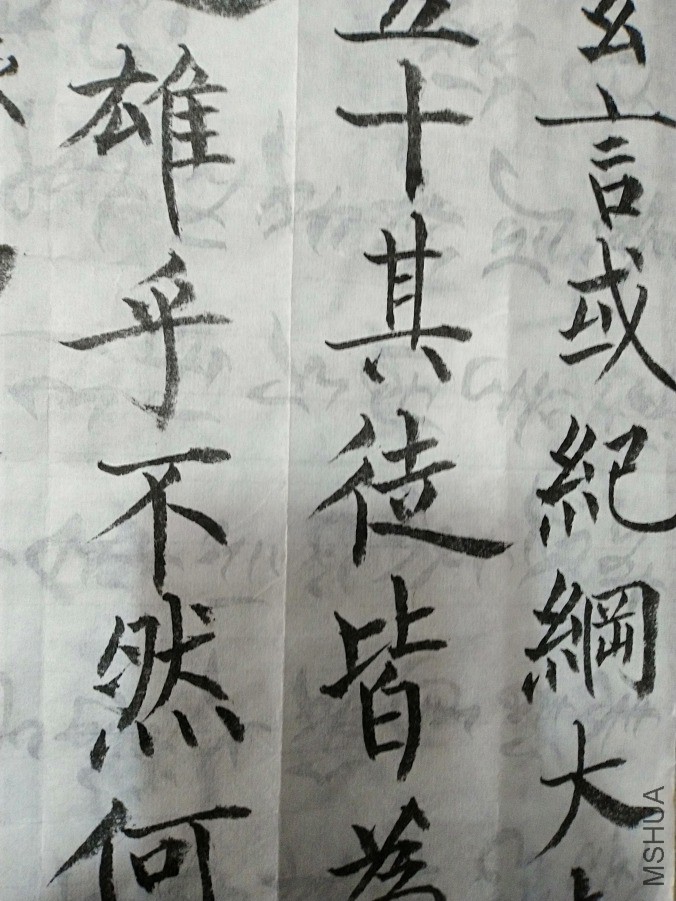 玄言或紀綱大
五十其徒皆為
雄乎不然何
MSHUA